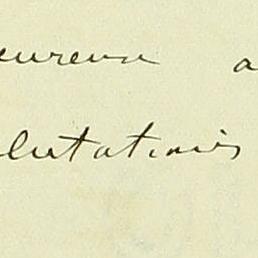 eureux a
lutations